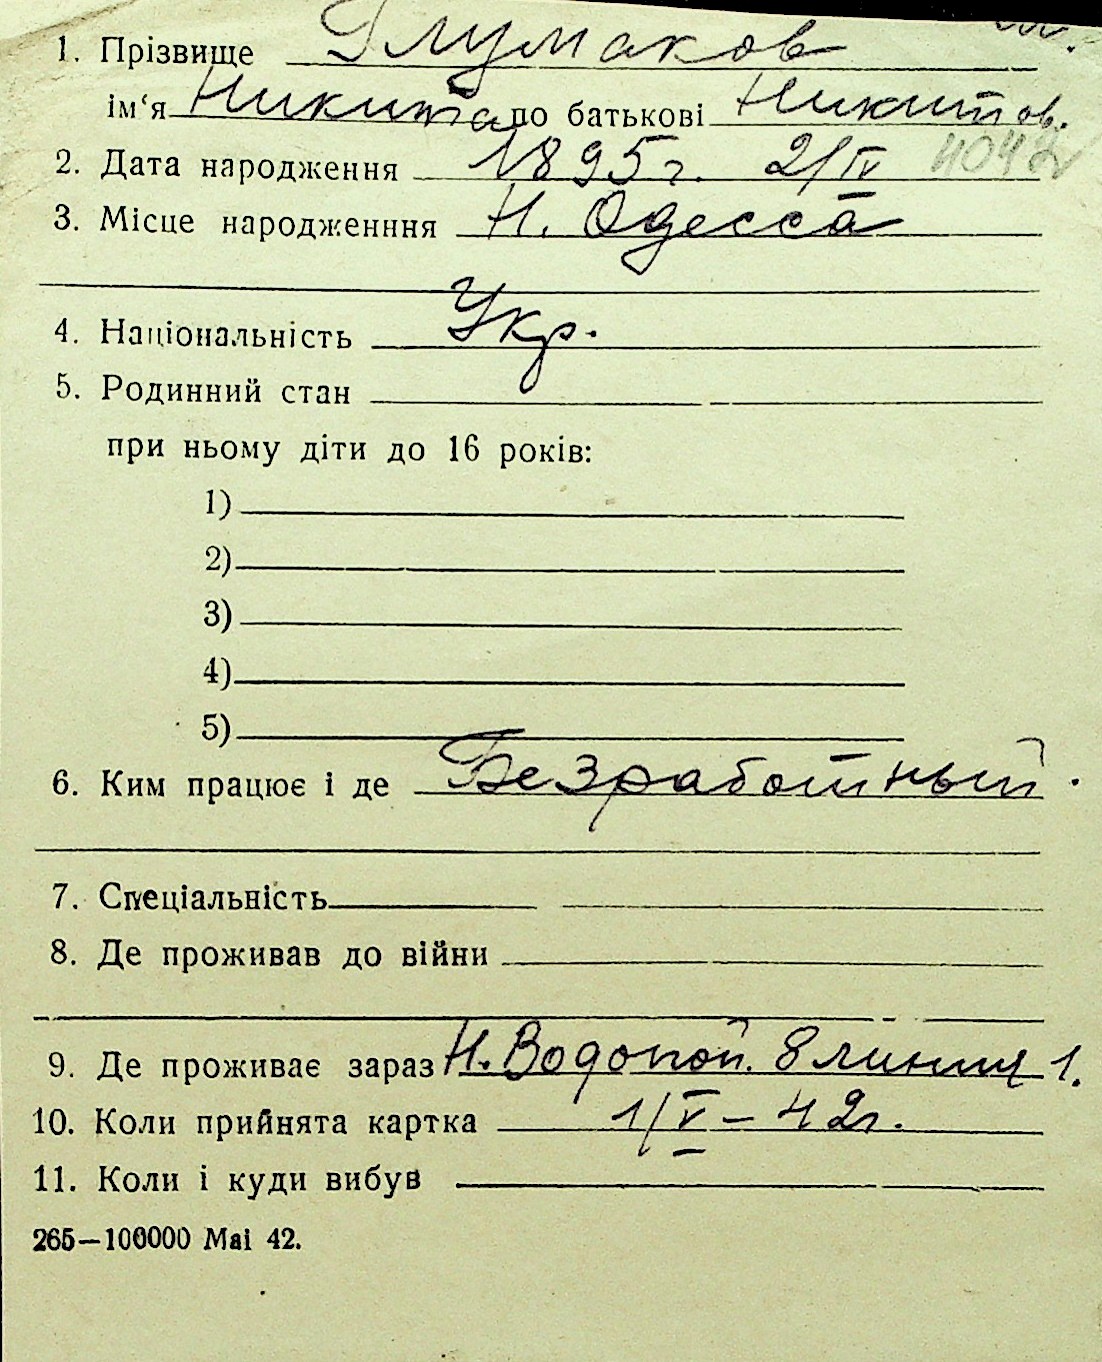 1. Прізвище Глумаков
ім‘я Никита по батькові Никитов.
2. Дата народження 1895 г. 2/IV 4042
3. Місце народженння Н. Одесса
4. Національність Укр.
5. Родинний стан
при ньому діти до 16 років:
1)
2)
3)
4)
5)
6. Ким працює і де Безработный.
7. Спеціальність
8. Де проживав до війни
9. Де проживає зараз Н. Водопой. 8 линия 1.
10. Коли прийнята картка 1/V – 42 г.
11. Коли і куди вибув
265—100000 Маі 42.